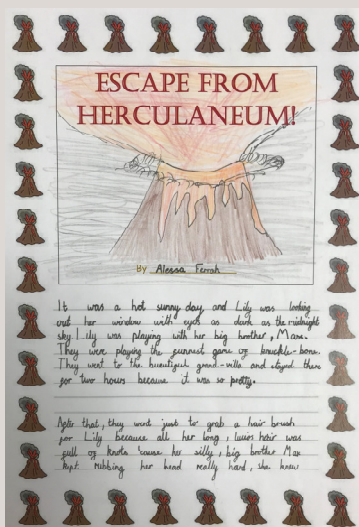 ESCAPE FROM
HERCULANEUM!
By Alessa Ferrah
It was a hot sunny day and Lily was looking
out her window with eyes as dark as the midnight
sky Lily was playing with her big brother, Max.
They were playing the funnest game of knuckle-bone.
They went to the beautiful grand-villa and stayed there
for two hours because it was so pretty.
After that, they went just to grab a hair brush
for Lily because all her long, hair was
full of knots 'cause her silly, big brother Max
kept rubbing her head really hard, she knew